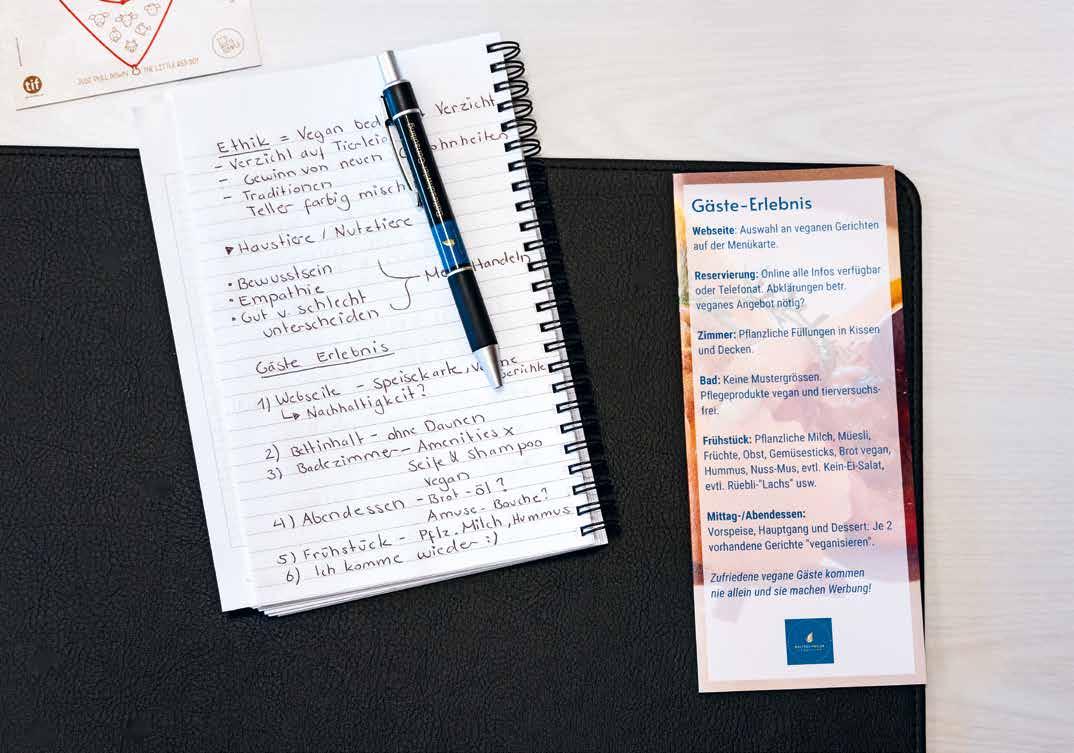 JUST PULL DOWN THE LITTLE RED DOT
tif
Ethik = Vegan bed Verzicht
- Verzicht auf Tierleid
- Gewinn von neuen ohnheiten
- Traditionen
Teller farbig misch
▸ Haustiere / Nutztiere
• Bewusstsein
• Empathie
• Gut v. schlecht
unterscheiden
Handeln
Gäste Erlebnis
1) Webseite - Speisekarte,
↳ Nachhaltigkeit?
2) Bettinhalt - ohne Daunen
3) Badezimmer - Amenities x
Seife & Shampoo
vegan
4) Abendessen - Brot - öl?
Amuse-Bouche?
5) Frühstück - Pflz. Milch, Hummus
6) Ich komme wieder :)
Gäste-Erlebnis
Webseite: Auswahl an veganen Gerichten
auf der Menükarte.
Reservierung: Online alle Infos verfügbar
oder Telefonat. Abklärungen betr.
veganes Angebot nötig?
Zimmer: Pflanzliche Füllungen in Kissen
und Decken.
Bad: Keine Mustergrössen.
Pflegeprodukte vegan und tierversuchs-
frei.
Frühstück: Pflanzliche Milch, Müesli,
Früchte, Obst, Gemüsesticks, Brot vegan,
Hummus, Nuss-Mus, evtl. Kein-Ei-Salat,
evtl. Rüebli-"Lachs" usw.
Mittag-/Abendessen:
Vorspeise, Hauptgang und Dessert: Je 2
vorhandene Gerichte "veganisieren".
Zufriedene vegane Gäste kommen
nie allein und sie machen Werbung!